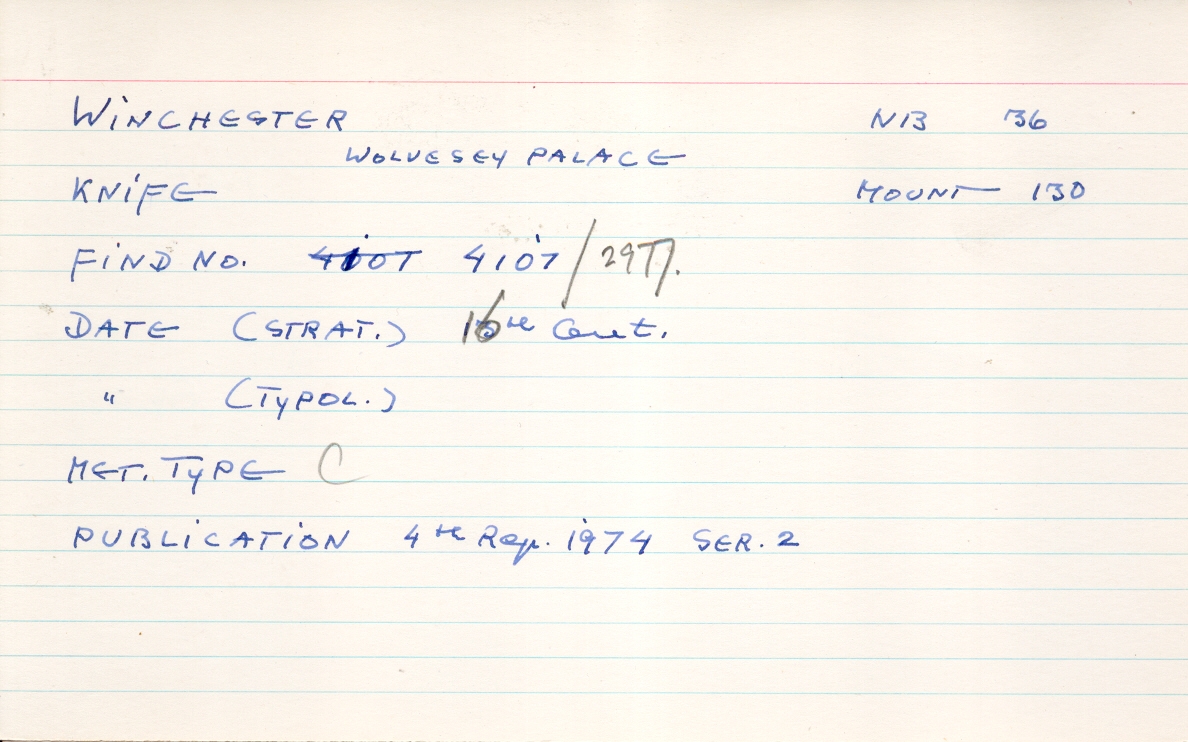 WINCHESTER NB 36
WOLVESEY PALACE
KNIFE MOUNT 130
FIND NO. 4107 4107 / 2977.
DATE (STRAT.) 16th Cent.
" (TYPOL.)
MET. TYPE C
PUBLICATION 4th Rep. 1974 SER. 2